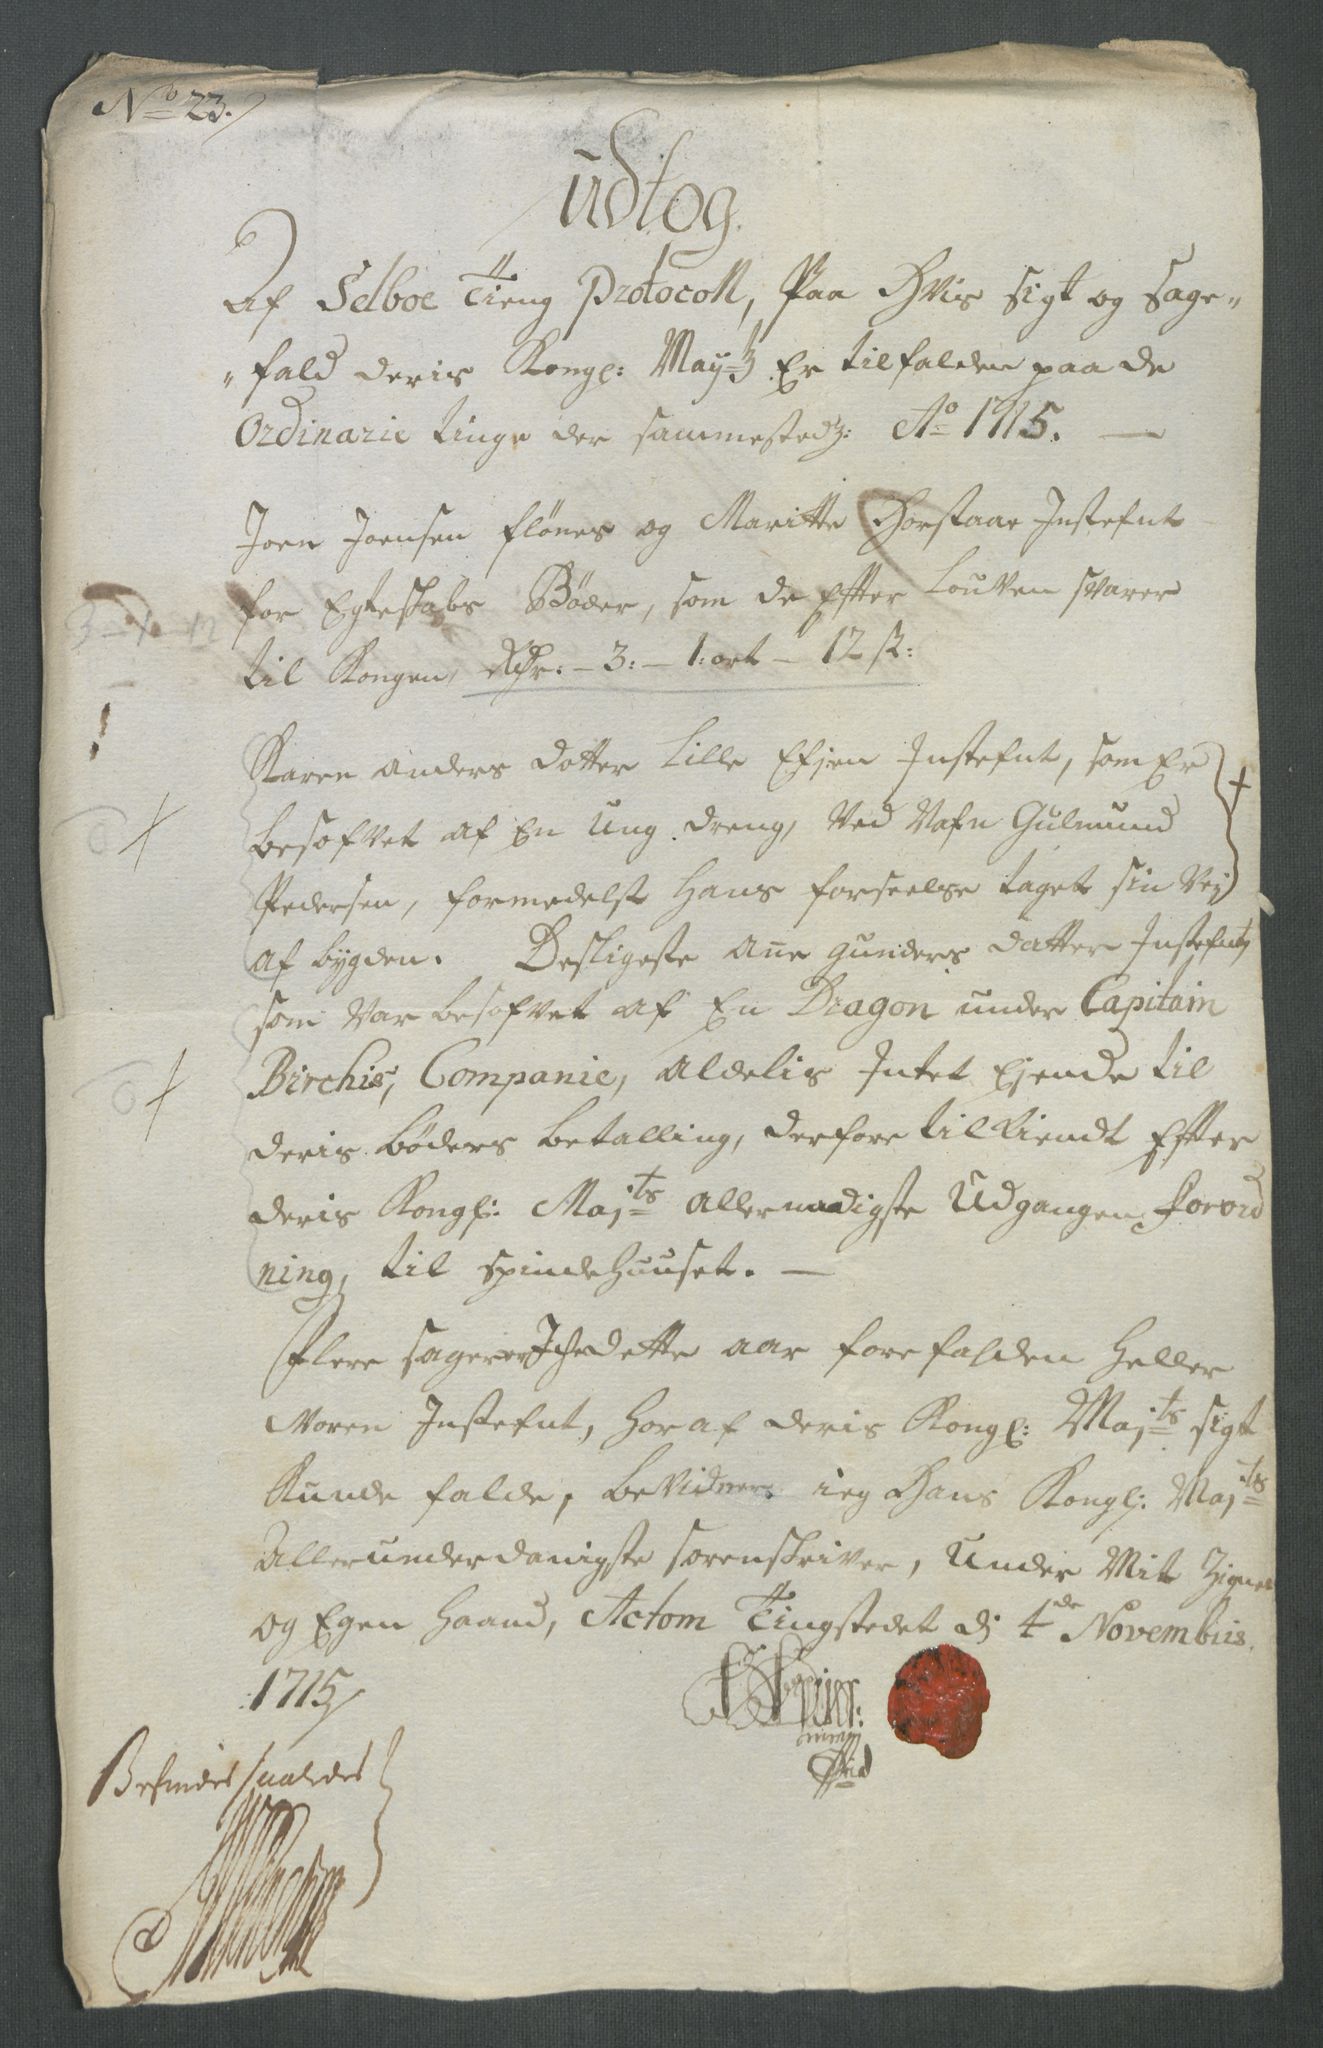 No 23.
Udtog
Af Selboe Tieng Protocoll, Paa Hvis sigt og sage„
„fald deris Kongl: Mayts Er tilfalden paa de
Ordinarie tinge der sammestedz: Ao 1715. —
Joen Joensen Flönes og Maritte Horstaae Instefnt
for Egteskabs Böder, som de Effter Louven svarer
3 – 1 – 12
til Kongen, Rdr: – 3: – 1: ort – 12 sk:
Karen Anders dotter Lille Efjen Instefnt, som Er
besofvet af En Ung dreng, Ved Nafn Gulmund
Pedersen, formedelst hans forseelse taget sin Vej
af bygden. Desligeste Ane Gunders datter Instefnt,
som Var besofvet af En Dragon under Capitain
Birchis, Companie, aldelis Intet Ejende til
deris böders betalling, derfore tilkiendt Effter
deris Kongl: Majts allernaadigste Udgangen forord
ning, til spindehuuset. —
Flere sager er Iche dette aar forefalden heller
Voren Instefnt, hor af deris Kongl: Majts sigt
kunde falde, beVidner ieg Hans Kongl: Majts
Allerunderdanigste sorenskriver, Under Mit Zignet
og Egen haand, Actom Tingstedet dj 4de Novembris
1715
Befindes saaledes